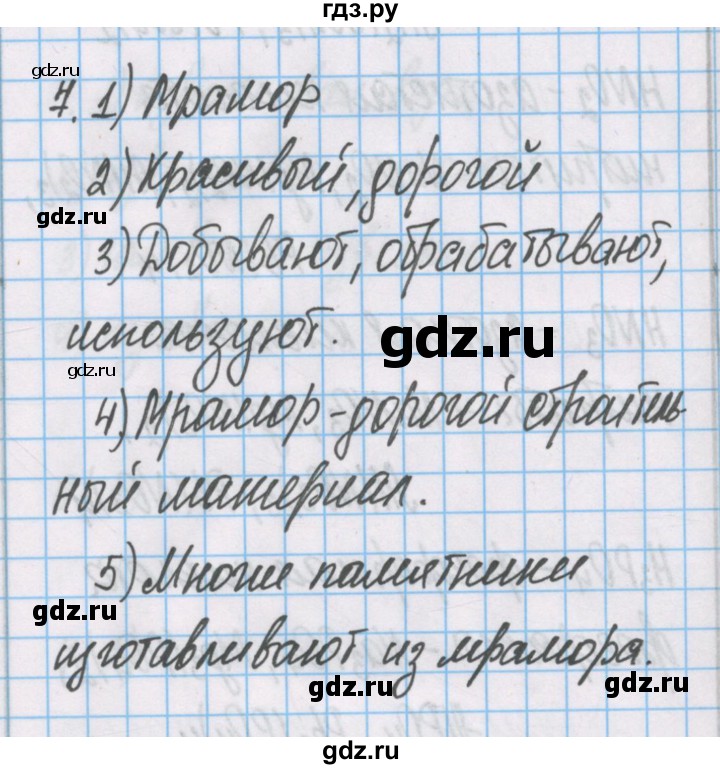 гдз.ру
gdz.ru
7. 1) Мрамор
2) Красивый, дорогой
gdz.ru
3) Добывают, обрабатывают,
используют.
gdz.ru
gdz.ru
4) Мрамор - дорогой строитель
ный материал.
5) Многие памятники
gdz.ru
изготавливают из мрамора.
gdz.ru
gdz.ru
gdz.ru